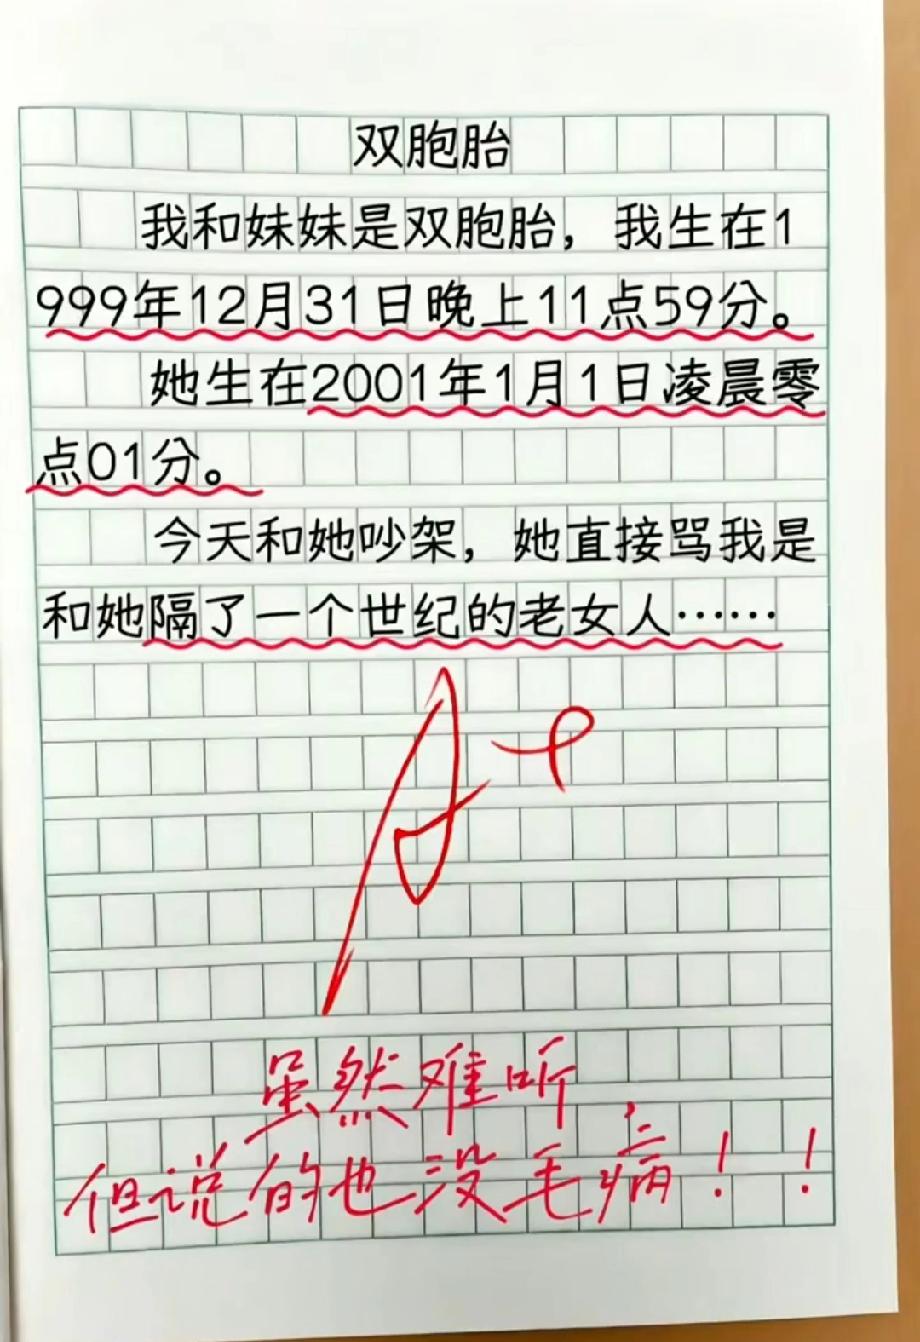 双胞胎
我和妹妹是双胞胎，我生在1
999年12月31日晚上11点59分。
她生在2001年1月1日凌晨零
点01分。
今天和她吵架，她直接骂我是
和她隔了一个世纪的老女人……
A+
虽然难听，
但说的也没毛病！！